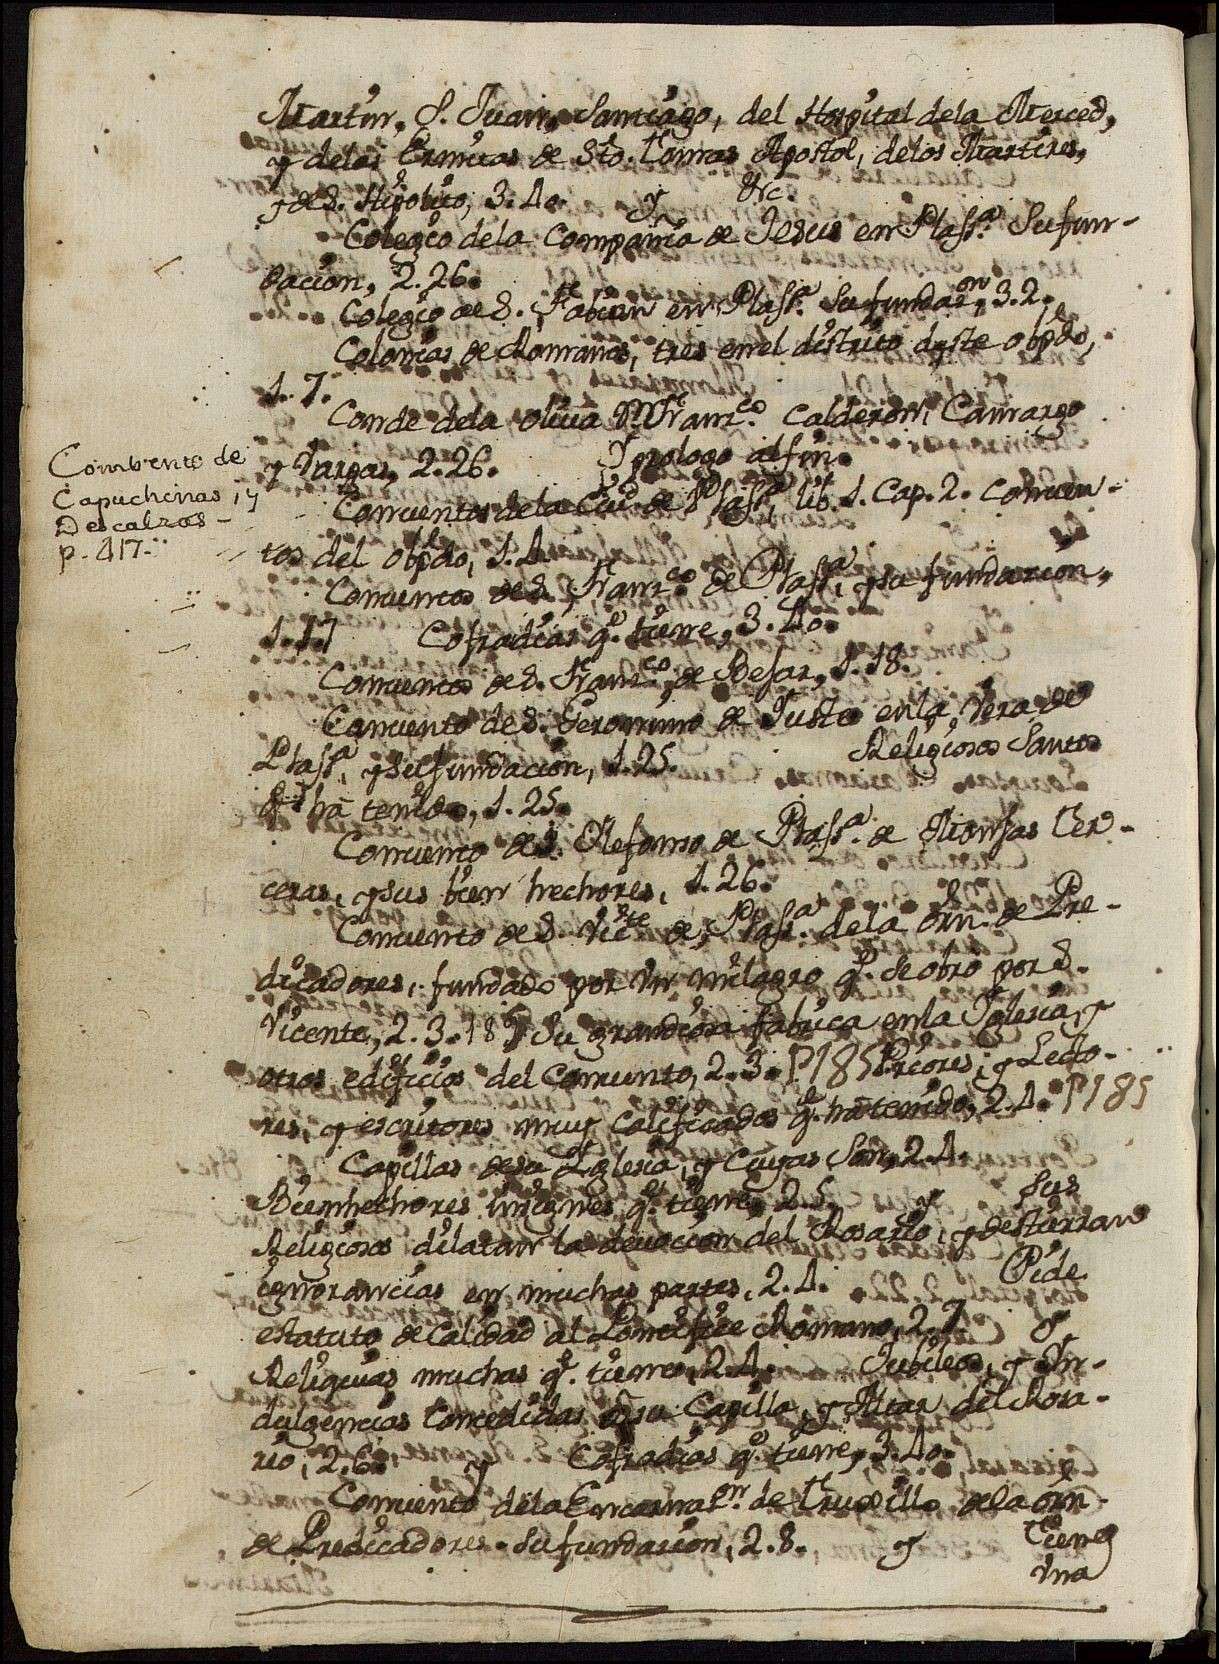 Martin, S. Juan, Santiago, del Hospital dela Merced,
y delas Ermitas de Sto. Tomas Apostol, delos Martires,
y de S. Hipolito, 3. 40. y &c.
Colegio dela Compañia de Jesus en Plasª. Su fun-
dacion, 2. 26.
Colegio de S. Fabian en Plasª. su fundaon, 3. 2.
Colonias de Romanos, tres en el distrito deste obpdo,
1. 7.
Conde dela oliua Dn. Franco. Calderon, Camargo
y Vargas, 2. 26. Y prologo al fin.
Conuentos dela Ciud. de Plasª, lib. 1. Cap. 2. Conuen-
tos del obpdo, 1. 4.
Combento de
Capuchinas, y
Descalzos -
p. 417.
Conuento de S. Franco. de Plasª, y su fundacion,
1. 17 Cofradias q. tiene, 3. 40.
Conuento de S. Franco. de Befar, 1. 18.
Conuento de S. Geronimo de Juste en la Vera de
Plasª, y su fundacion, 1. 25. Religiosos Santos
q. ha tenido, 1. 25.
Conuento de S. Ilefonso de Plasª. de Monjas Ter-
ceras, y sus bien hechores, 1. 26.
Conuento de S. Victe de Plasª. dela orn. de Pre-
dicadores, fundado por vn milagro q. se obro por S.
Vicente, 2. 3. 18 Y su grandiosa fabrica en la Iglesia, y
otros edificios del Conuento, 2. 3. P185 Priores, y Lecto-
res, y escritores muy calificados q. ha tenido, 2. 4. P185
Capillas de su Iglesia, y Cuyas Son, 2. 4.
Bienhechores insignes q. tiene, 2. 5. y sus
Religiosos dilatan la deuocion del Rosario, y destierran
ignorancias en muchas partes, 2. 4. Pide
estatuto de Calidad al Pontifice Romano, 2. 7. y
Reliquias muchas q. tiene, 2. 4. Jubileos, y In-
dulgencias Concedidas a su Capilla, y Altar del Rosa-
rio, 2. 6. y Cofradias q. tiene, 3. 40.
Conuento dela Encarnaon. de Truxillo dela orn
de Predicadores. Su fundacion, 2. 8. y Tiene
vna